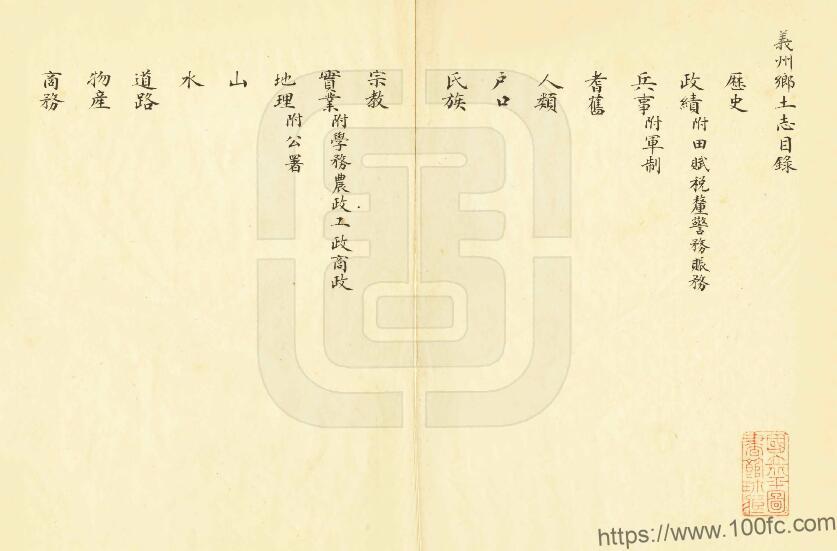 義州鄉土志目錄
歷史
政績附田賦稅釐警務賑務
兵事附軍制
耆舊
人類
戶口
氏族
宗教
實業附學務農政工政商政
地理附公署
山
水
道路
物產
商務
https://www.100fc.com